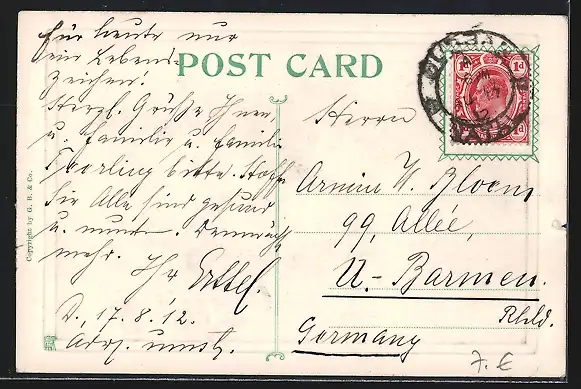 Für heute nur
ein Lebens-
zeichen!
POST CARD
Herzl. Grüße Ihnen
u. Familie u. Familie
bitte. Hoffe
Sie Alle sind gesund
u. munter. Demnächst
mehr. Ihr Ertel.
D., 17. 8. '12.
Adr. umst.
Copyright by G. B. & Co.
1d 1d
DURBAN
NATAL
Herrn
Armin W. Bloem
99, Allée,
U.- Barmen.
Rhld.
Germany
7.€